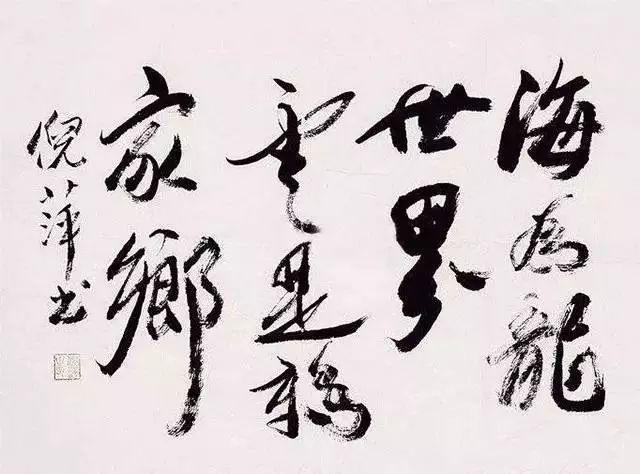 海為龍
世界
雲是鶴
家鄉
倪萍書